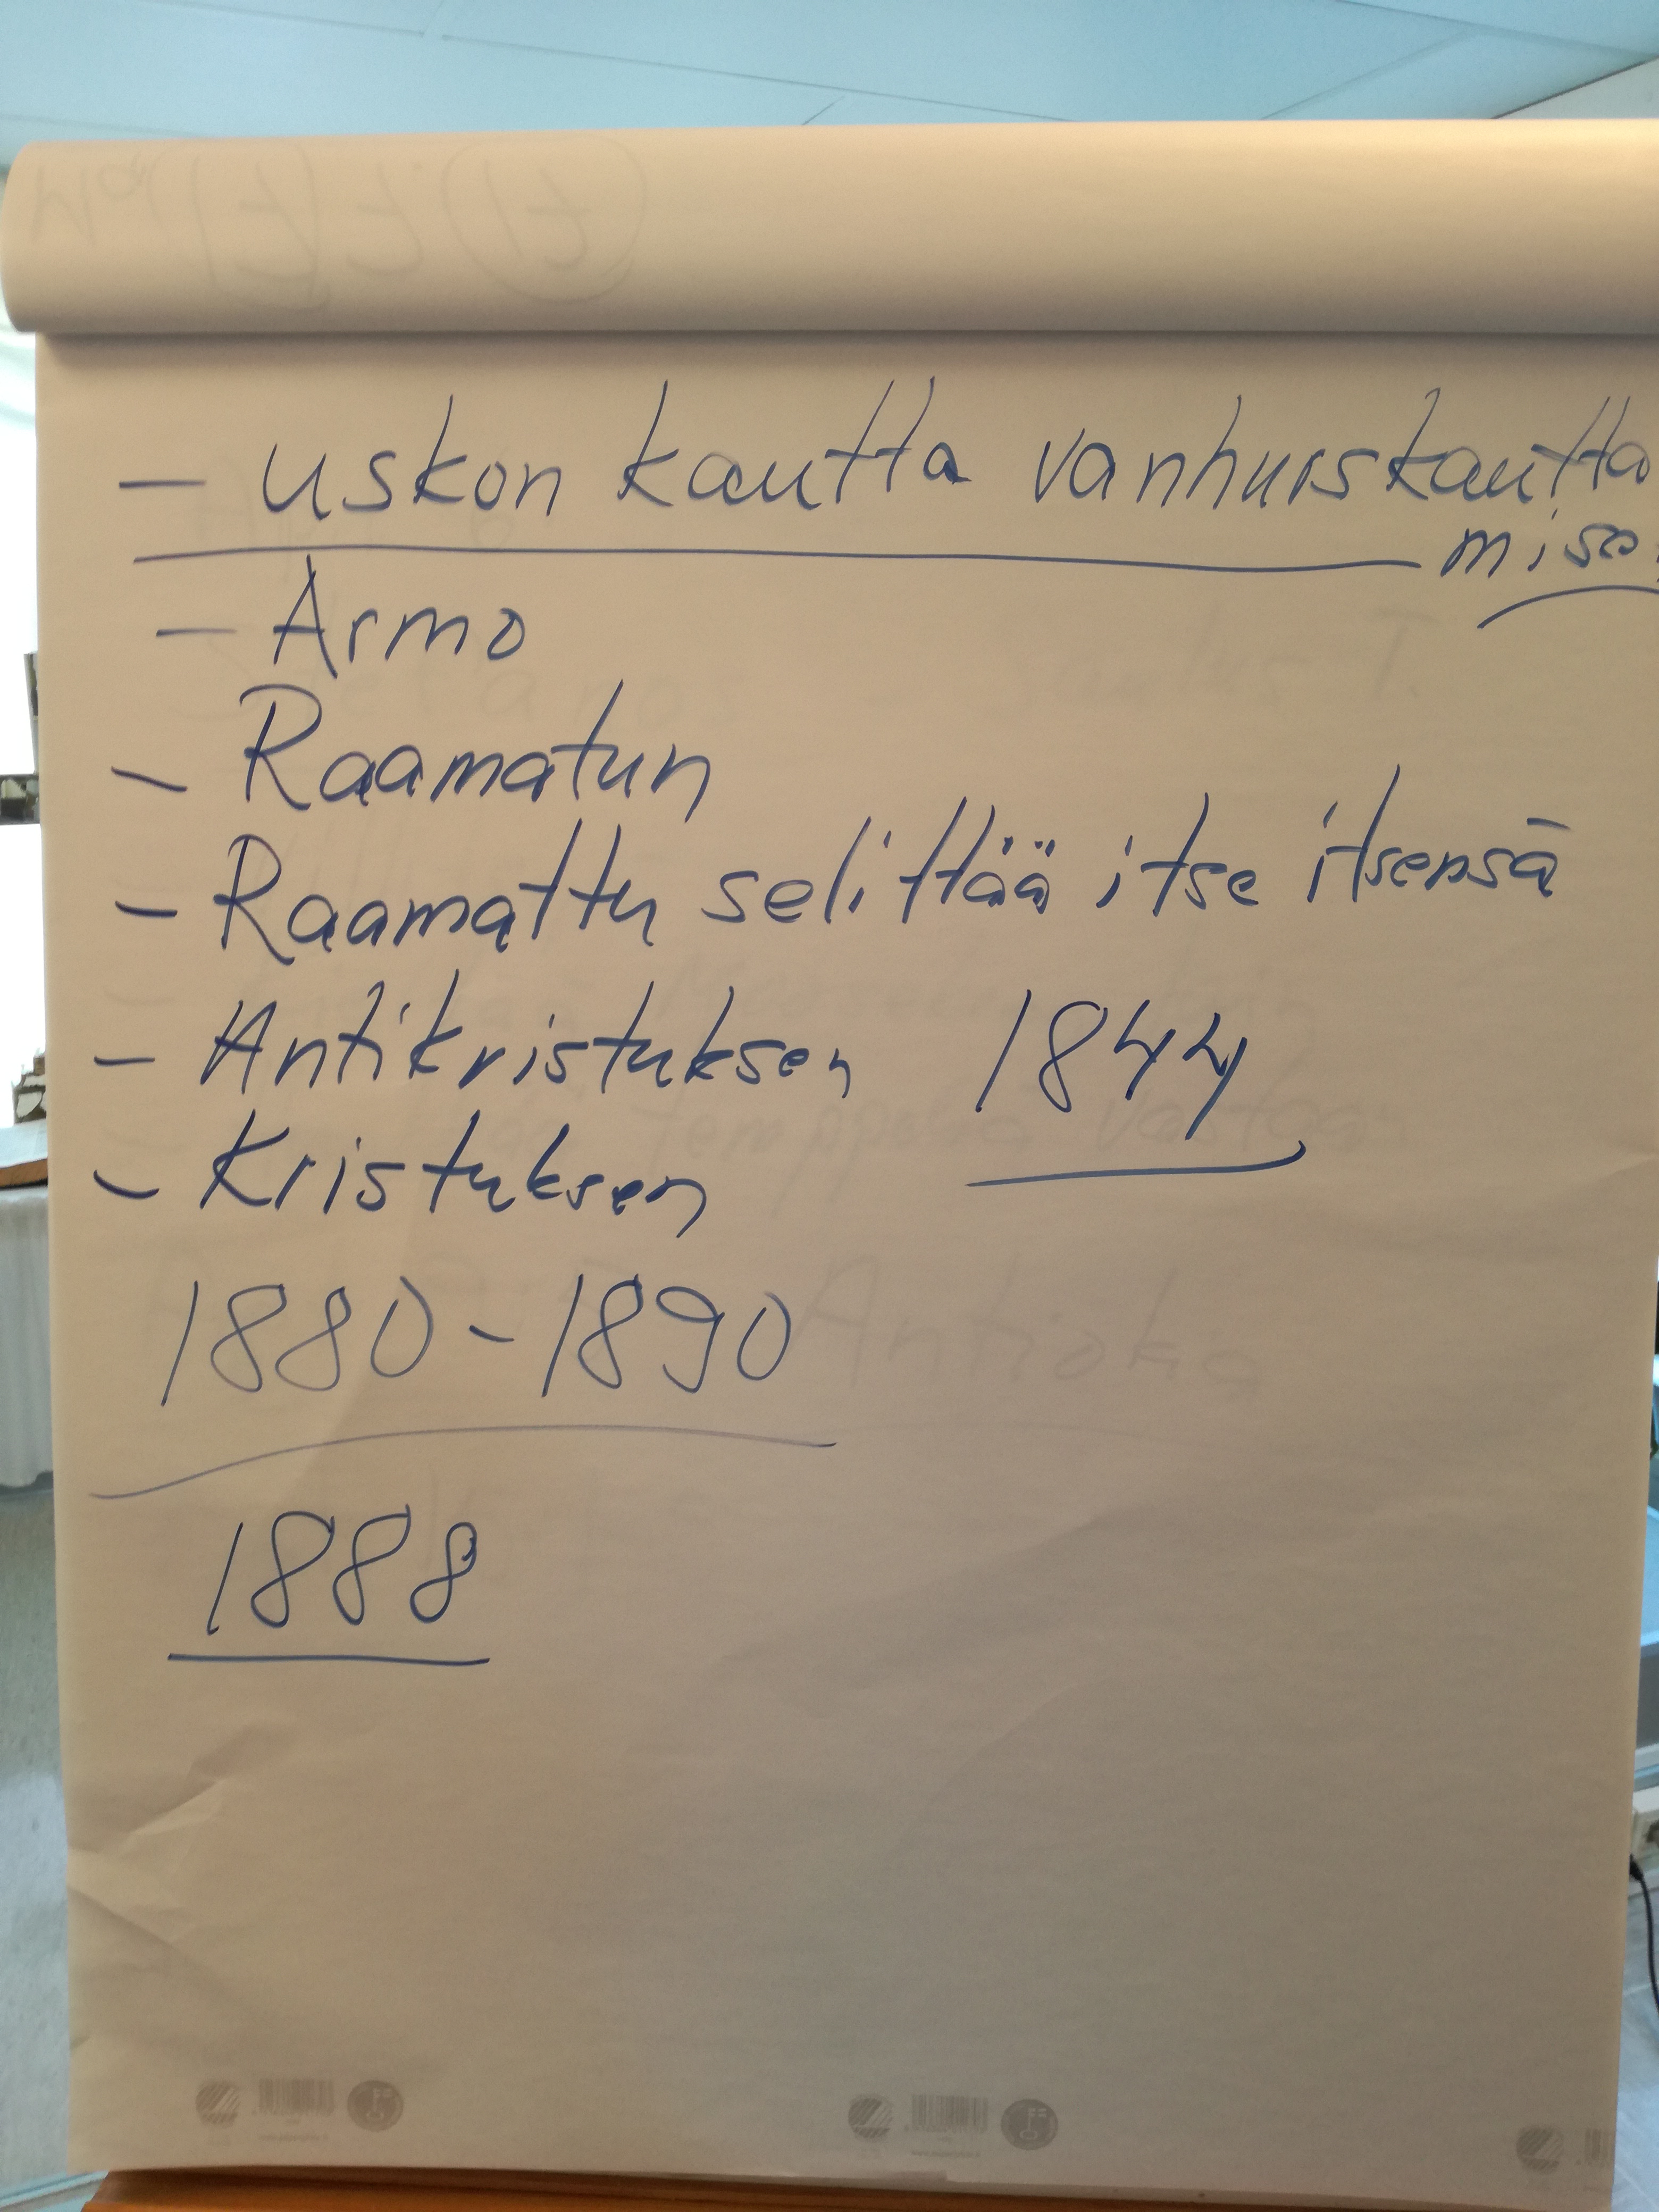 - uskon kautta vanhurskautta
miso
- Armo
- Raamatun
- Raamattu selittää itse itsensä
- Antikristuksen 1844
- Kristuksen
1880-1890
1888
Antiokia